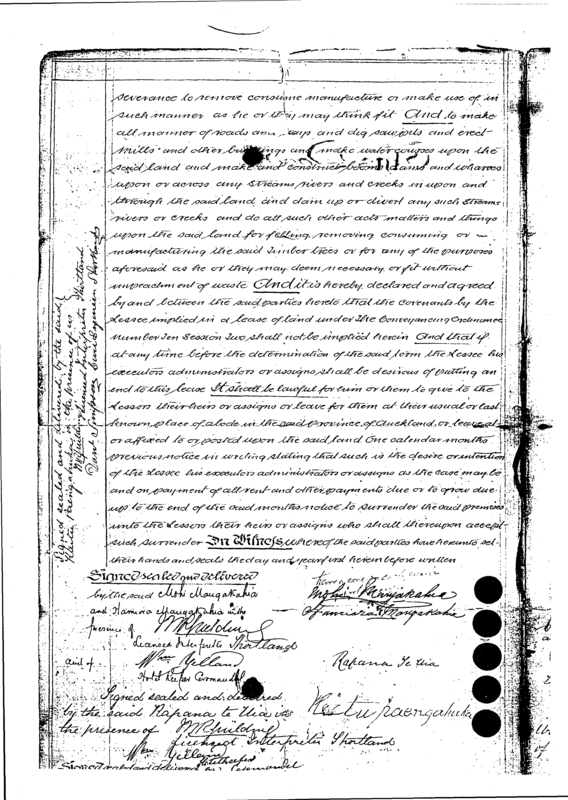 severance to remove consume manufacture or make use of in
such manner as he or they may think fit And to make
all manner of roads and ways and dig sawpits and erect
Mills and other buildings and make water courses upon the
said land and make and construct booms dams and wharves
upon or across any streams rivers and creeks in upon and
through the said land and dam up or divert any such streams
rivers or creeks and do all such other acts matters and things
upon the said land for felling removing consuming or —
manufacturing the said Timber trees or for any of the purposes
aforesaid as he or they may deem necessary or fit without
impeachment of waste And it is hereby declared and agreed
by and between the said parties hereto that the covenants by the
Lessee implied in a lease of land under The Conveyancing Ordinance
Number Ten Session Two shall not be implied herein And that if
at any time before the determination of the said term the Lessee his
executors administrators or assigns shall be desirous of putting an
end to this lease It shall be lawful for him or them to give to the
Lessors their heirs or assigns or leave for them at their usual or last
known place of abode in the said Province of Auckland or leave at
or affixed to or posted upon the said land One calendar months
previous notice in writing stating that such is the desire or intention
of the Lessee his executors administrators or assigns as the case may be
and on payment of all rent and other payments due or to grow due
up to the end of the said months notice to surrender the said premises
unto the Lessors their heirs or assigns who shall thereupon accept
such surrender In Witness whereof the said parties have hereunto set
their hands and seals the day and year first herein before written
Signed sealed and delivered
by the said Mohi Mangakahia
and Hamiora Mangakahia in the
presence of
Licensed Interpreter Shortland
and of
Hotel Keeper Coromandel
Mohi Mangakahia
Hamiora Mangakahia
Rapana Te Uia
Signed sealed and delivered
by the said Rapana te Uia in
the presence of
Licensed Interpreter Shortland
Hotelkeeper
Coromandel
Signed sealed and delivered by the said
in the presence of us
Licensed Interpreter Shortland
Civil Engineer Shortland